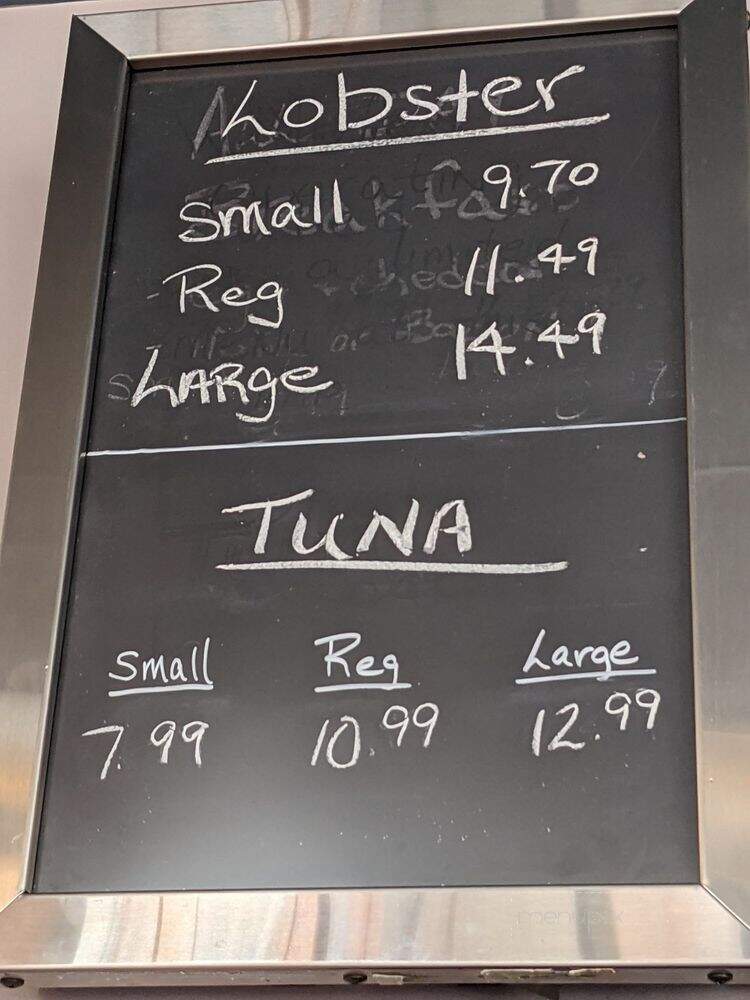 Lobster
Small 9.70
Reg 11.49
LARge 14.49
TUNA
Small Reg Large
7.99 10.99 12.99